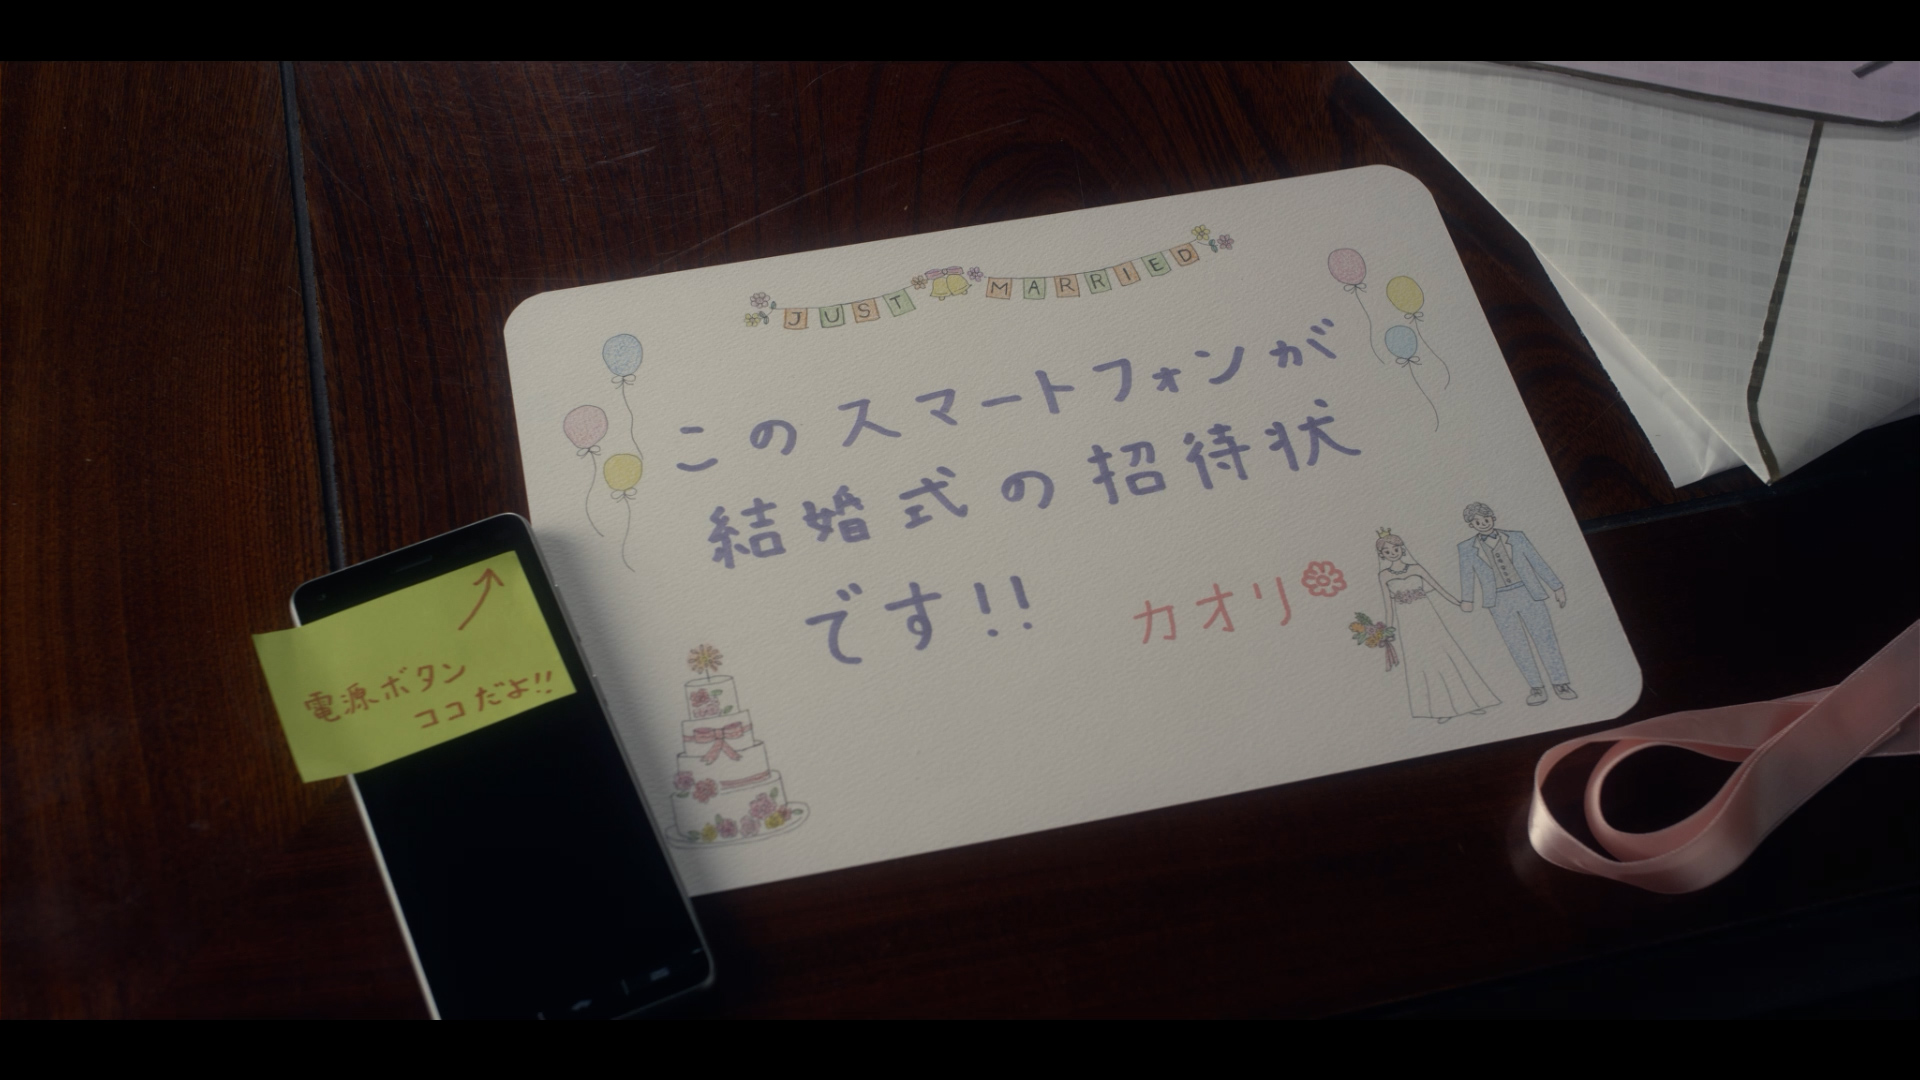 JUST MARRIED
このスマートフォンが
結婚式の招待状
です!!
カオリ
電源ボタン
ココだよ!!